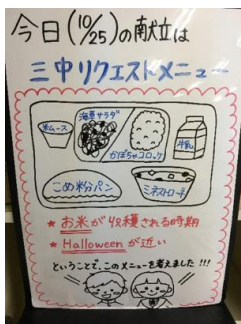 今日(10/25)の献立は
三中リクエストメニュー
米ムース
海草サラダ
かぼちゃコロッケ
牛乳
こめ粉パン
ミネストローネ
★ お米が収穫される時期
★ Halloweenが近い
ということで、このメニューを考えました!!!